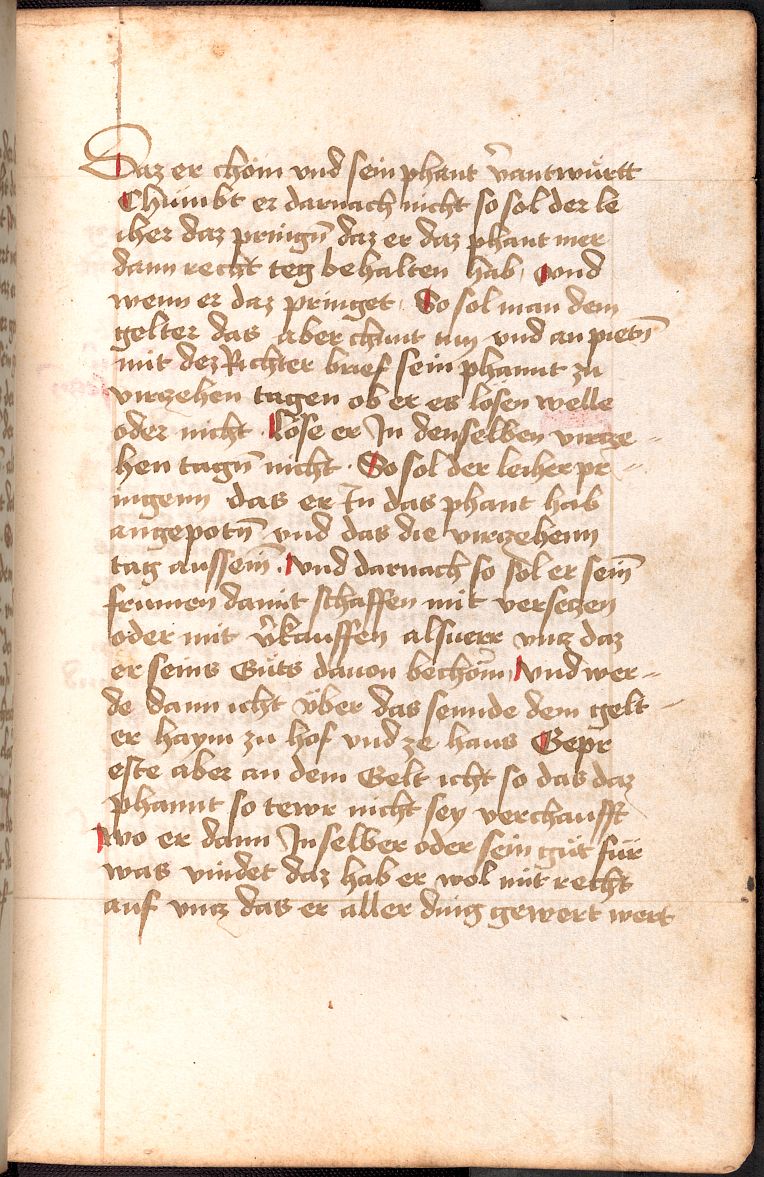 Daz er chöm vnd sein phant v̄antwürtt
Chümbt er darnach nicht so sol der le
iher daz pringn̄ daz er daz phant mer
dann recht teg behalten hab, vnd
wenn er daz pringet. So sol man dem
gelter das aber chunt tun vnd an pietn̄
mit dez Richter brief sein phannt zu
virczehen tagen ob er es lösen welle
oder nicht. Löse er In denselben vircze-
hen tagn̄ nicht. So sol der leiher pr-
ingenn das er In das phant hab
angepotn̄ vnd das die virczehenn
tag aussein̄. vnd darnach so sol er sein̄
frummen damit schaffen mit verseczen
oder mit v̄kauffen alsuerr vncz daz
er seins Guts dauon bechöm̄, vnd wer-
de dann icht über das sennde dem gelt-
er haym zu hof vnd ze haus Gepr
este aber an dem Gelt icht so das daz
phannt so tewr nicht sey verchaufft
wo er dann In selber oder sein gut für
was vindet daz hab er wol mit recht
auf vncz das er aller ding gewert wert